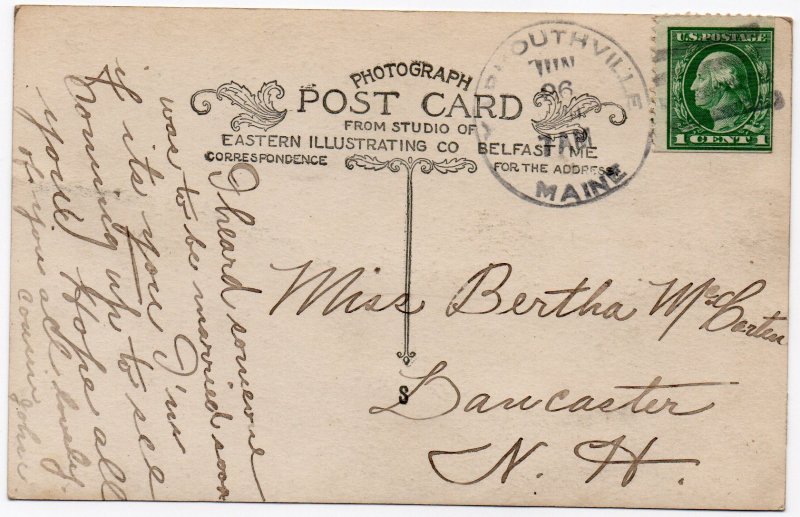 PHOTOGRAPH
POST CARD
FROM STUDIO OF
EASTERN ILLUSTRATING CO BELFAST ME
CORRESPONDENCE
FOR THE ADDRESS
MOUTHVILLE
JUN
26
7 AM
MAINE
U.S. POSTAGE
1 CENT 1
I heard someone
was to be married soon
if its you I'm
coming up to see
you. Hope all
of you are
cousin John
Miss Bertha McCarten
Lancaster
N. H.
S